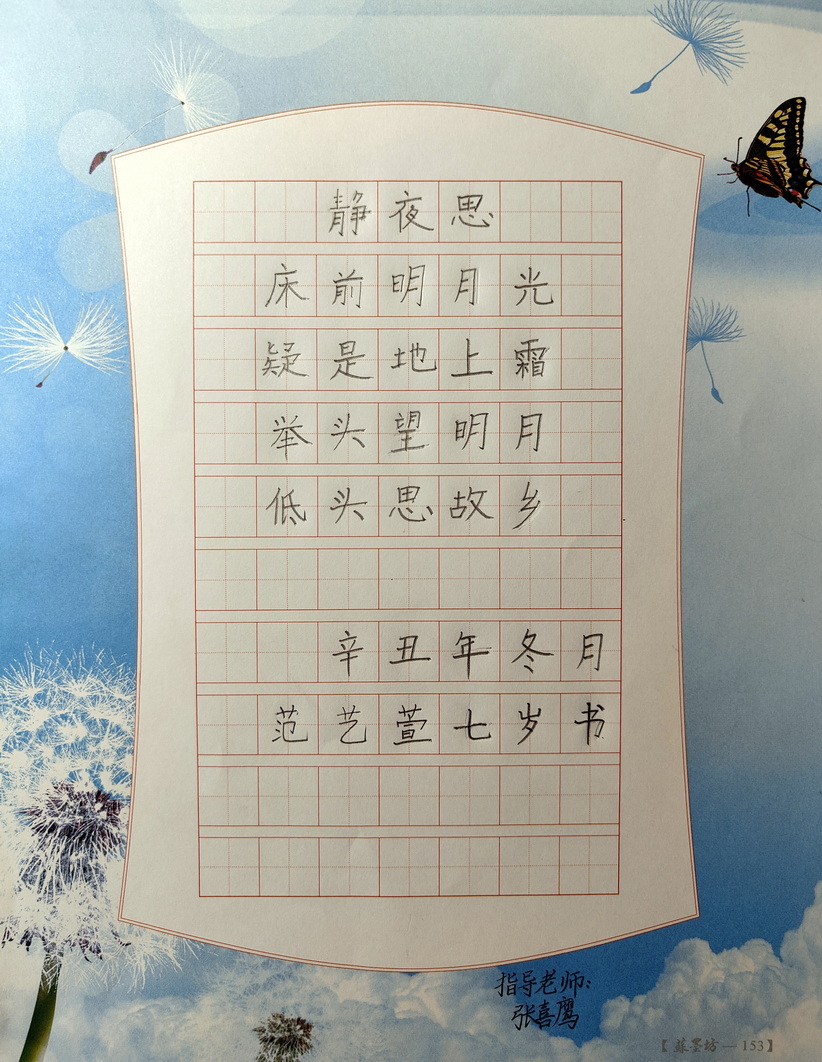 静夜思
床前明月光
疑是地上霜
举头望明月
低头思故乡
辛丑年冬月
范艺萱七岁书
指导老师：
张喜鹰
【蘇墨坊—153】